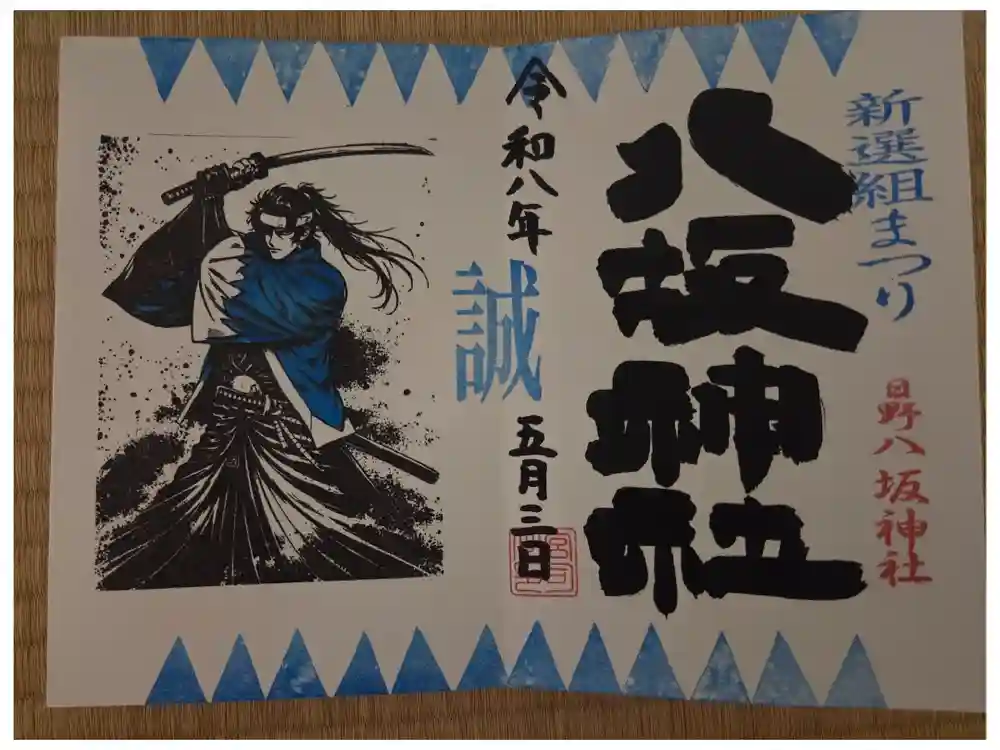 新選組まつり
日野八坂神社
八坂神社
令和八年
五月三日
誠